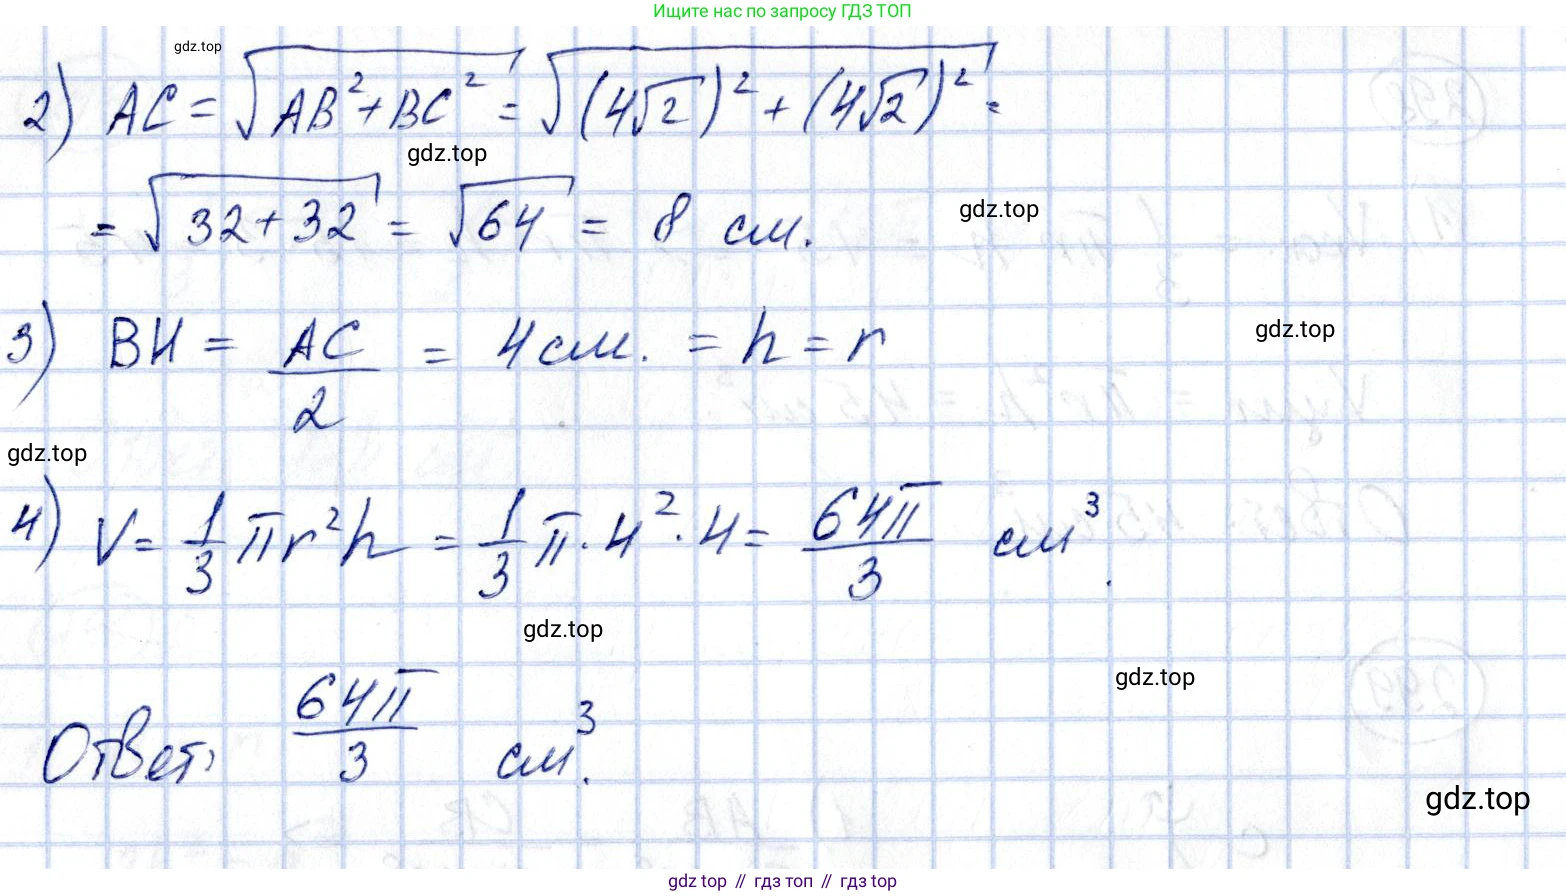 Ищите нас по запросу ГДЗ ТОП
gdz.top
2) AC = √(AB² + BC²) = √((4√2)² + (4√2)²) =
gdz.top
= √(32+32) = √64 = 8 см.
gdz.top
3) BH = AC/2 = 4 см. = h = r
gdz.top
gdz.top
4) V = 1/3 πr²h = 1/3 π · 4² · 4 = 64π/3 см³.
gdz.top
gdz.top
Ответ: 64π/3 см³.
gdz.top
gdz top // гдз топ // гдз top